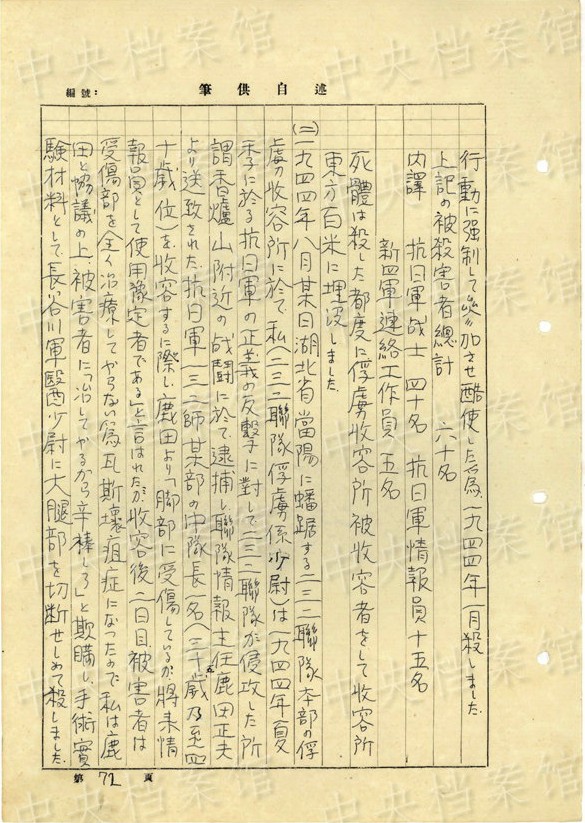 中央档案馆
編號：
筆供自述
行動に强制して参加させ酷使した為、一九四四年一月殺しました。
上記の被殺害者總計　六十名
内譯　抗日軍战士　四十名　抗日軍情報員十五名
新四軍連絡工作員　五名
死體は殺した都度に俘虜收容所被收容者をして收容所
東方百米に埋没しました。
(二)一九四四年八月某日湖北省當陽に蟠踞する二三二聯隊本部の俘
虜收容所に於て、私（二三二聯隊俘虜係少尉）は一九四四年夏
季に於る抗日軍の正義の反擊に對して二三二聯隊が侵攻した所
謂香爐山附近の战闘に於て逮捕し聯隊情報主任鹿田正夫
より送致された抗日軍一三二師某部の中隊長一名（三十歳乃至四
十歳位）を收容するに際し鹿田より「脚部に受傷しているが將来情
報員として使用豫定者である」と言はれたが、收容後二日目、被害者は
受傷部を全く治療してやらない為瓦斯壞疽症になつたので私は鹿
田と協議の上、被害者に「治してやるから辛棒しろ」と欺瞞し、手術實
驗材料として、長谷川軍醫少尉に大腿部を切断せしめて殺しました。
第 72 頁